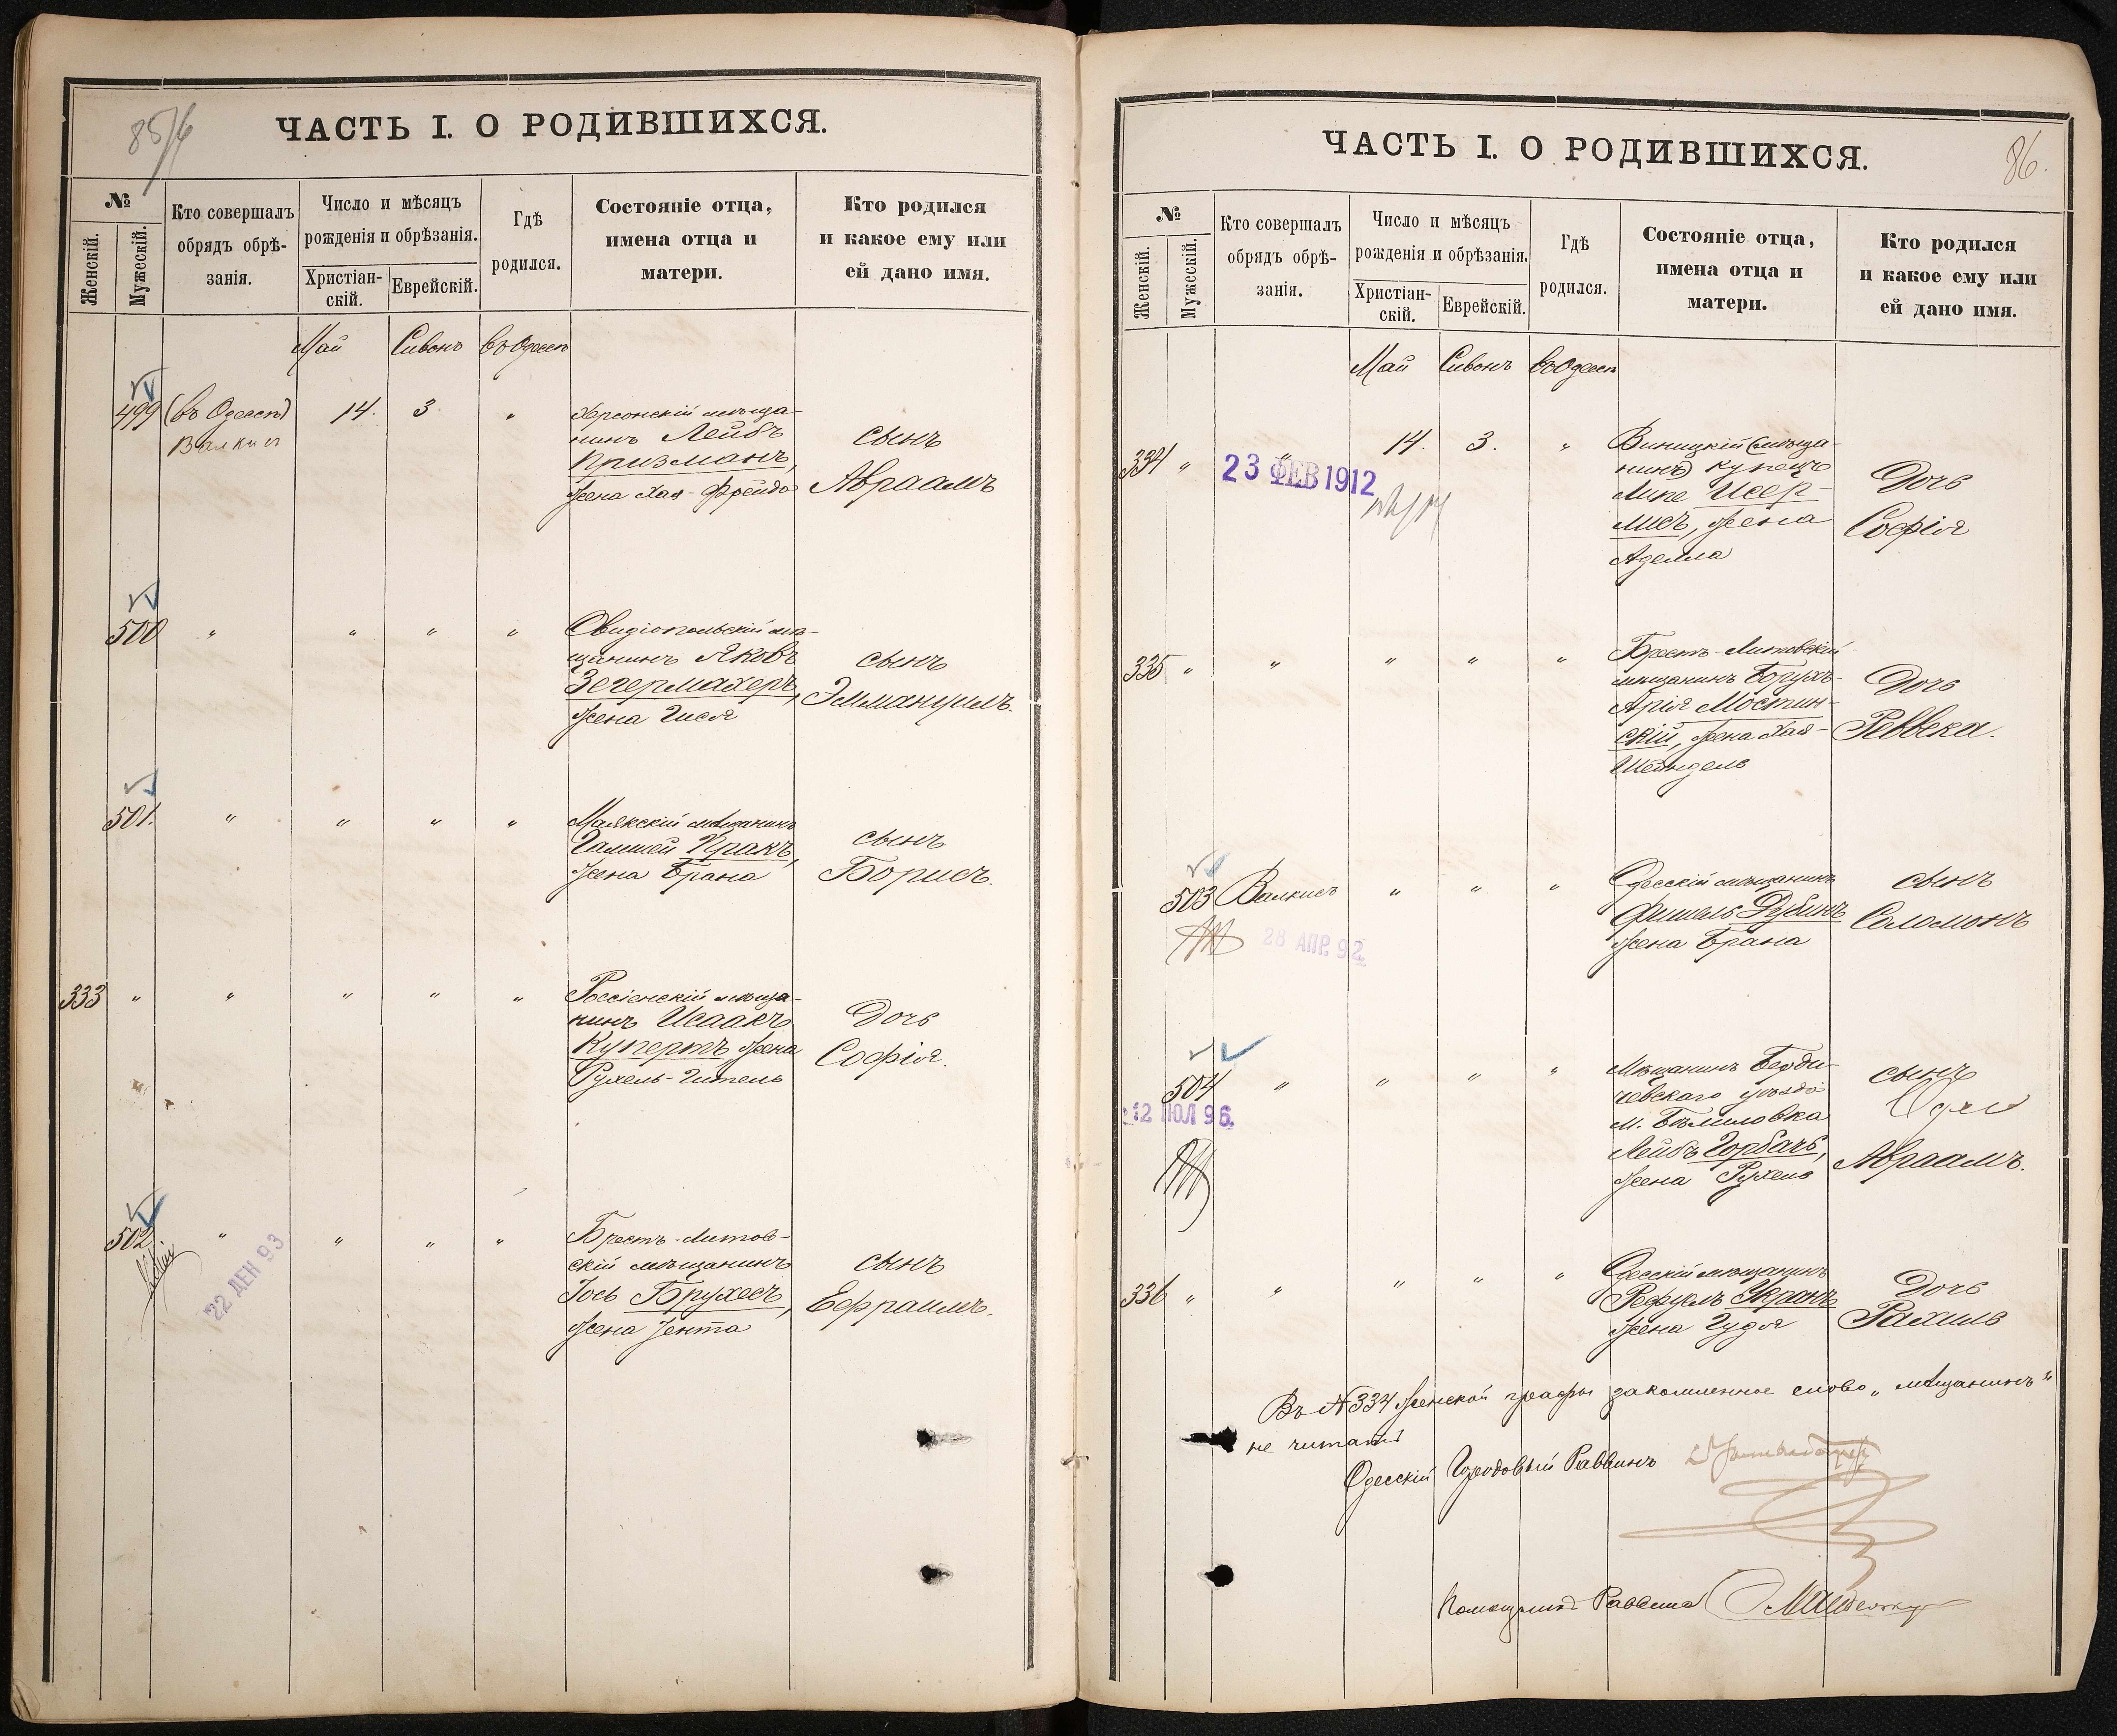 85/6
ЧАСТЬ I. О РОДИВШИХСЯ.
№
Женскій.
Мужескій.
Кто совершалъ
обрядъ обрѣ-
занія.
Число и мѣсяцъ
рожденія и обрѣзанія.
Христіан-
скій.
Еврейскій.
Гдѣ
родился.
Состояніе отца,
имена отца и
матери.
Кто родился
и какое ему или
ей дано имя.
Май Сивонъ въ Одессѣ
499 (въ Одессѣ) 14. 3 "
Валкис
Херсонскій мѣща-
нинъ Лейбъ
Призманъ,
жена Хая-Фрейда
сынъ
Авраамъ
500 " " " "
Овидіопольскій мѣ-
щанинъ Яковъ
Зегермахеръ,
жена Гися
сынъ
Эммануилъ.
501. " " " "
Маякскій мѣщанинъ
Гамшей Кракъ,
жена Брана
сынъ
Борисъ.
333 " " " " "
Россіенскій мѣща-
нинъ Исаакъ
Купертъ жена
Рухель-Гитель
Дочь
Софія.
502 " " " "
22 ДЕН 93
Брестъ-Литов-
скій мѣщанинъ
Іось Брухесъ,
жена Іента
сынъ
Ефраимъ.
86.
ЧАСТЬ I. О РОДИВШИХСЯ.
№
Женскій.
Мужескій.
Кто совершалъ
обрядъ обрѣ-
занія.
Число и мѣсяцъ
рожденія и обрѣзанія.
Христіан-
скій.
Еврейскій.
Гдѣ
родился.
Состояніе отца,
имена отца и
матери.
Кто родился
и какое ему или
ей дано имя.
Май Сивонъ въ Одессѣ
334 " " 14. 3. "
23 ФЕВ 1912
Виницкій (мѣща-
нинъ) купецъ
Липе Исер-
лисъ, жена
Аделла
Дочь
Софія
335 " " " " "
Брестъ-Литовскій
мѣщанинъ Борухъ-
Арія Мостин-
скій, жена Хая-
Шейндель
Дочь
Реввека.
503 Валкисъ " " "
28 АПР. 92
Одесскій мѣщанинъ
Фишель Дубинъ
жена Брана
сынъ
Соломонъ
504 " " " "
12 ІЮЛ 96.
Мѣщанинъ Берди-
чевскаго уѣзда
м. Бѣлиловка
Лейбъ Горбачь,
жена Рухель
сынъ
Авраамъ.
336 " " " " "
Одесскій мѣщанинъ
Рефулъ Укранъ
жена Гудя
Дочь
Рахиль
Въ №334 женской графы закомленное слово „мѣщанинъ"
не читать
Одесскій Городовый Раввинъ
Помощникъ Раввина